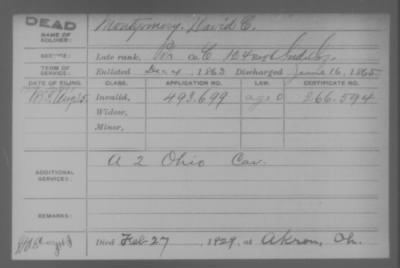 DEAD
NAME OF SOLDIER:
Montgomery, David C.
SERVICE:
Late rank, Co. C, 124
TERM OF SERVICE:
Enlisted Dec 4, 1863 Discharged June 16, 1865
DATE OF FILING. CLASS. APPLICATION NO. LAW. CERTIFICATE NO.
Invalid, 493.699 266.594
Widow,
Minor,
ADDITIONAL SERVICES:
A 2 Ohio Cav.
REMARKS:
Died Feb 27, 1929, at Akron, Oh.